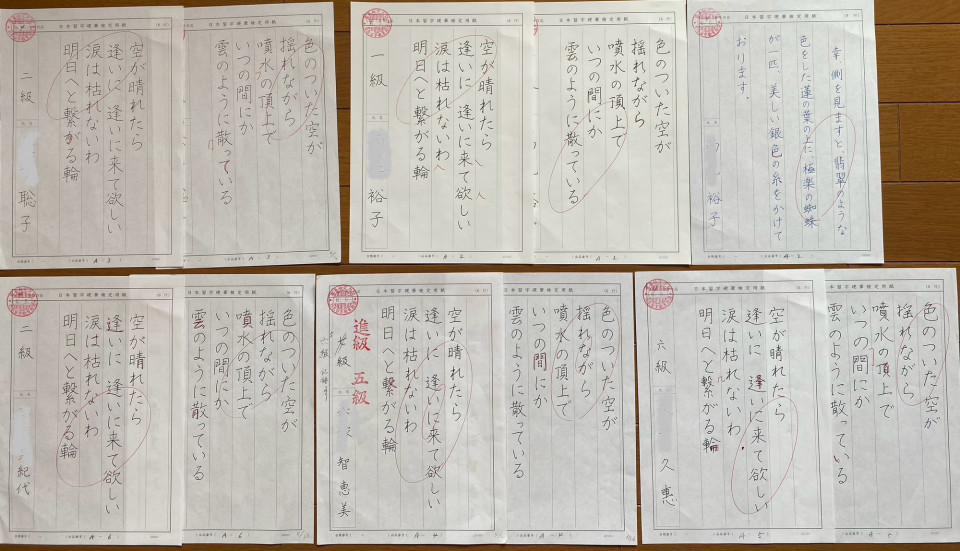 日本習字硬筆検定用紙
空が晴れたら
逢いに 逢いに来て欲しい
涙は枯れないわ
明日へと繋がる輪
二級
聡子
A-3
日本習字硬筆検定用紙
色のついた空が
揺れながら
噴水の頂上で
いつの間にか
雲のように散っている
A-3
日本習字硬筆検定用紙
空が晴れたら
逢いに 逢いに来て欲しい
涙は枯れないわ
明日へと繋がる輪
一級
裕子
A-2
日本習字硬筆検定用紙
色のついた空が
揺れながら
噴水の頂上で
いつの間にか
雲のように散っている
A-2
日本習字硬筆検定用紙
幸、側を見ますと、翡翠のような
色をした蓮の葉の上に極楽の蜘蛛
が一匹、美しい銀色の糸をかけて
おります。
裕子
A-2
日本習字硬筆検定用紙
空が晴れたら
逢いに 逢いに来て欲しい
涙は枯れないわ
明日へと繋がる輪
二級
紀代
A-6
日本習字硬筆検定用紙
色のついた空が
揺れながら
噴水の頂上で
いつの間にか
雲のように散っている
A-6
日本習字硬筆検定用紙
空が晴れたら
逢いに 逢いに来て欲しい
涙は枯れないわ
明日へと繋がる輪
進級 五級
智恵美
A-4
日本習字硬筆検定用紙
色のついた空が
揺れながら
噴水の頂上で
いつの間にか
雲のように散っている
A-4
日本習字硬筆検定用紙
空が晴れたら
逢いに 逢いに来て欲しい
涙は枯れないわ
明日へと繋がる輪
六級
久恵
A-5
日本習字硬筆検定用紙
色のついた空が
揺れながら
噴水の頂上で
いつの間にか
雲のように散っている